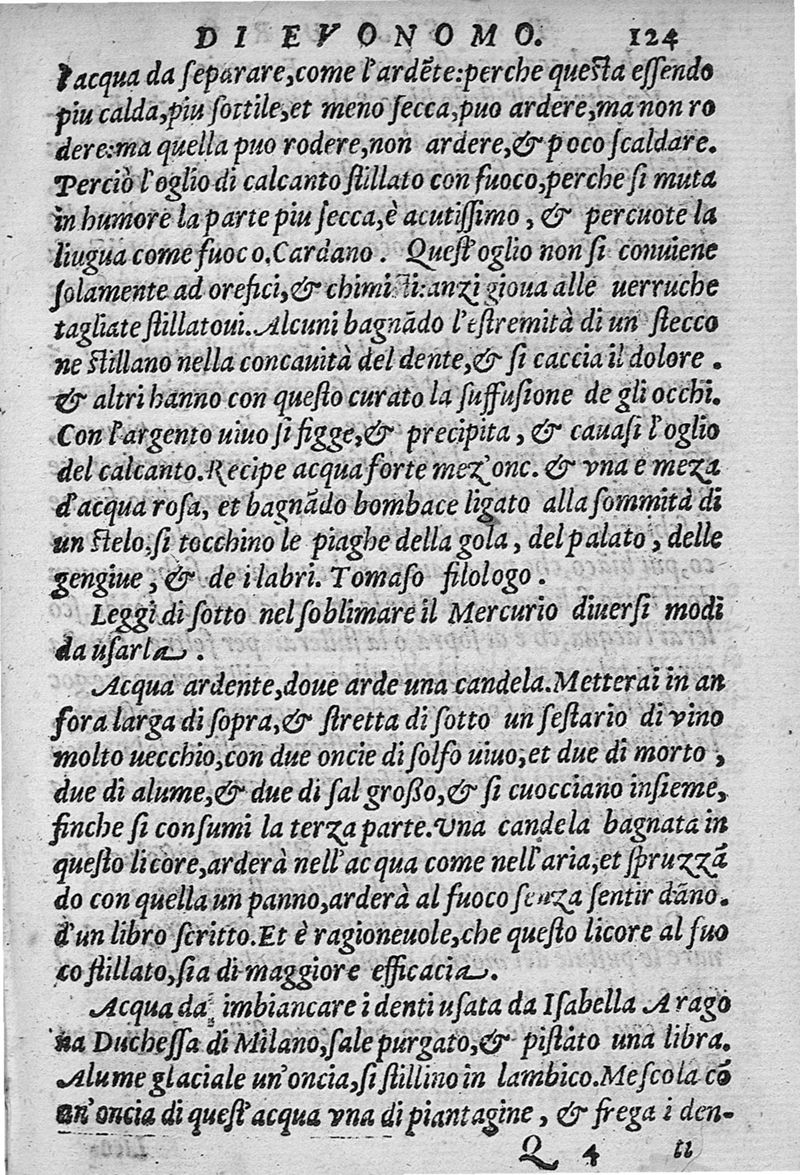 DI EVONOMO. 124
l'acqua da ſeparare, come l'ardẽte: perche queſta eſſendo
piu calda, piu ſottile, et meno ſecca, puo ardere, ma non ro
dere: ma quella puo rodere, non ardere, & poco ſcaldare.
Perciò l'oglio di calcanto ſtillato con fuoco, perche ſi muta
in humore la parte piu ſecca, è acutiſſimo, & percuote la
liugua come fuoco. Cardano. Queſt'oglio non ſi conuiene
ſolamente ad orefici, & chimiſti: anzi gioua alle uerruche
tagliate ſtillatoui. Alcuni bagnãdo l'eſtremità di un ſtecco
ne ſtillano nella concauità del dente, & ſi caccia il dolore.
& altri hanno con queſto curato la ſuffuſione de gli occhi.
Con l'argento uiuo ſi figge, & precipita, & cauaſi l'oglio
del calcanto. Recipe acqua forte mez'onc. & vna e meza
d'acqua roſa, et bagnãdo bombace ligato alla ſommità di
un ſtelo, ſi tocchino le piaghe della gola, del palato, delle
gengiue, & de i labri. Tomaſo filologo.
Leggi di ſotto nel ſoblimare il Mercurio diuerſi modi
da uſarla.
Acqua ardente, doue arde una candela. Metterai in an
fora larga di ſopra, & ſtretta di ſotto un ſeſtario di vino
molto uecchio, con due oncie di ſolfo uiuo, et due di morto,
due di alume, & due di ſal groſſo, & ſi cuocciano inſieme,
finche ſi conſumi la terza parte. Una candela bagnata in
queſto licore, arderà nell'acqua come nell'aria, et ſpruzzã
do con quella un panno, arderà al fuoco ſenza ſentir dãno.
d'un libro ſcritto. Et è ragioneuole, che queſto licore al fuo
co ſtillato, ſia di maggiore efficacia.
Acqua da imbiancare i denti uſata da Iſabella Arago
na Ducheſſa di Milano, ſale purgato, & piſtato una libra.
Alume glaciale un'oncia, ſi ſtillino in lambico. Meſcola cõ
un'oncia di queſt'acqua vna di piantagine, & frega i den-
Q 4 ti